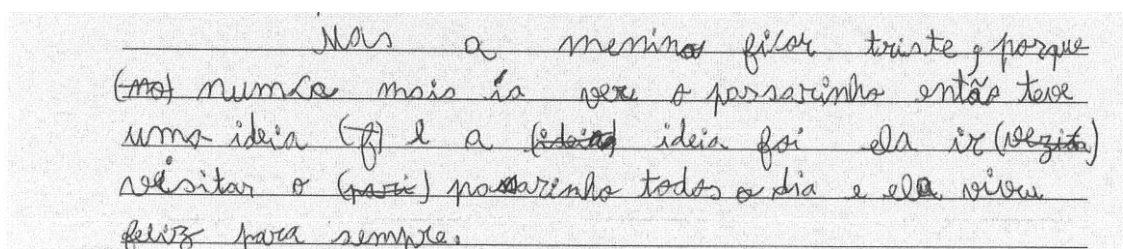 Mas a menina ficar triste, porque
(no) numca mais ia vere o passarinho então teve
uma ideia (f) e a (ideia) ideia foi ela ir (vezita)
visitar o (pasi) passarinho todos o dia e ela viveu
feliz para sempre.